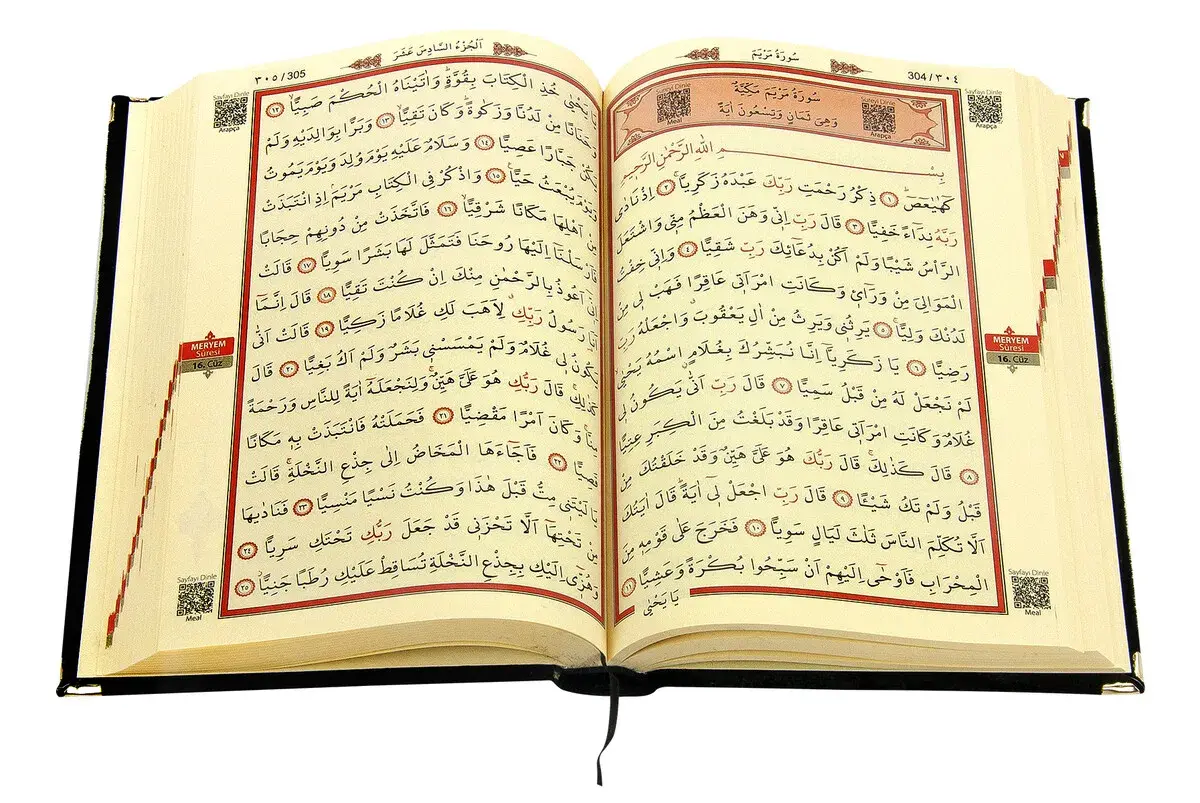 سُورَةُ مَرْيَمَ
304 / ٣٠٤
Sayfayı Dinle
Arapça
سُورَةُ مَرْيَمَ مَكِّيَّةٌ
وَهِيَ ثَمَانٍ وَتِسْعُونَ اٰيَةً
Meal
Sureyi Dinle
Arapça
بِسْمِ اللّٰهِ الرَّحْمٰنِ الرَّحِيمِ
كٓهٰيٰعٓصٓ ﴿١﴾ ذِكْرُ رَحْمَتِ رَبِّكَ عَبْدَهُ زَكَرِيَّا ﴿٢﴾ اِذْ نَادٰى
رَبَّهُ نِدَٓاءً خَفِيًّا ﴿٣﴾ قَالَ رَبِّ اِنّٖي وَهَنَ الْعَظْمُ مِنّٖي وَاشْتَعَلَ
الرَّأْسُ شَيْبًا وَلَمْ اَكُنْ بِدُعَٓائِكَ رَبِّ شَقِيًّا ﴿٤﴾ وَاِنّٖي خِفْتُ
الْمَوَالِيَ مِنْ وَرَٓاءٖي وَكَانَتِ امْرَاَتٖي عَاقِرًا فَهَبْ لٖي مِنْ
لَدُنْكَ وَلِيًّا ﴿٥﴾ يَرِثُنٖي وَيَرِثُ مِنْ اٰلِ يَعْقُوبَ وَاجْعَلْهُ رَبِّ
رَضِيًّا ﴿٦﴾ يَا زَكَرِيَّٓا اِنَّا نُبَشِّرُكَ بِغُلَامٍ اسْمُهُ يَحْيٰى
لَمْ نَجْعَلْ لَهُ مِنْ قَبْلُ سَمِيًّا ﴿٧﴾ قَالَ رَبِّ اَنّٰى يَكُونُ لٖي
غُلَامٌ وَكَانَتِ امْرَاَتٖي عَاقِرًا وَقَدْ بَلَغْتُ مِنَ الْكِبَرِ عِتِيًّا
﴿٨﴾ قَالَ كَذٰلِكَ قَالَ رَبُّكَ هُوَ عَلَيَّ هَيِّنٌ وَقَدْ خَلَقْتُكَ مِنْ
قَبْلُ وَلَمْ تَكُ شَيْئًا ﴿٩﴾ قَالَ رَبِّ اجْعَلْ لٖٓي اٰيَةً قَالَ اٰيَتُكَ
اَلَّا تُكَلِّمَ النَّاسَ ثَلٰثَ لَيَالٍ سَوِيًّا ﴿١٠﴾ فَخَرَجَ عَلٰى قَوْمِهٖ مِنَ
الْمِحْرَابِ فَاَوْحٰٓى اِلَيْهِمْ اَنْ سَبِّحُوا بُكْرَةً وَعَشِيًّا ﴿١١﴾
يَا يَحْيٰى
MERYEM
Sûresi
16. Cüz
Sayfayı Dinle
Meal
اَلْجُزْءُ السَّادِسَ عَشَرَ
٣٠٥ / 305
Sayfayı Dinle
Arapça
يَا يَحْيٰى خُذِ الْكِتَابَ بِقُوَّةٍ وَاٰتَيْنَاهُ الْحُكْمَ صَبِيًّا ﴿١٢﴾
وَحَنَانًا مِنْ لَدُنَّا وَزَكٰوةً وَكَانَ تَقِيًّا ﴿١٣﴾ وَبَرًّا بِوَالِدَيْهِ وَلَمْ
يَكُنْ جَبَّارًا عَصِيًّا ﴿١٤﴾ وَسَلَامٌ عَلَيْهِ يَوْمَ وُلِدَ وَيَوْمَ يَمُوتُ
وَيَوْمَ يُبْعَثُ حَيًّا ﴿١٥﴾ وَاذْكُرْ فِي الْكِتَابِ مَرْيَمَ اِذِ انْتَبَذَتْ
مِنْ اَهْلِهَا مَكَانًا شَرْقِيًّا ﴿١٦﴾ فَاتَّخَذَتْ مِنْ دُونِهِمْ حِجَابًا
فَاَرْسَلْنَٓا اِلَيْهَا رُوحَنَا فَتَمَثَّلَ لَهَا بَشَرًا سَوِيًّا ﴿١٧﴾ قَالَتْ
اِنّٖٓي اَعُوذُ بِالرَّحْمٰنِ مِنْكَ اِنْ كُنْتَ تَقِيًّا ﴿١٨﴾ قَالَ اِنَّمَٓا
اَنَا رَسُولُ رَبِّكِ لِاَهَبَ لَكِ غُلَامًا زَكِيًّا ﴿١٩﴾ قَالَتْ اَنّٰى
يَكُونُ لٖي غُلَامٌ وَلَمْ يَمْسَسْنٖي بَشَرٌ وَلَمْ اَكُ بَغِيًّا ﴿٢٠﴾ قَالَ
كَذٰلِكِ قَالَ رَبُّكِ هُوَ عَلَيَّ هَيِّنٌ وَلِنَجْعَلَهُٓ اٰيَةً لِلنَّاسِ وَرَحْمَةً
مِنَّا وَكَانَ اَمْرًا مَقْضِيًّا ﴿٢١﴾ فَحَمَلَتْهُ فَانْتَبَذَتْ بِهٖ مَكَانًا
قَصِيًّا ﴿٢٢﴾ فَاَجَٓاءَهَا الْمَخَاضُ اِلٰى جِذْعِ النَّخْلَةِ قَالَتْ
يَا لَيْتَنٖي مِتُّ قَبْلَ هٰذَا وَكُنْتُ نَسْيًا مَنْسِيًّا ﴿٢٣﴾ فَنَادٰيهَا
مِنْ تَحْتِهَٓا اَلَّا تَحْزَنٖي قَدْ جَعَلَ رَبُّكِ تَحْتَكِ سَرِيًّا ﴿٢٤﴾
وَهُزّٖٓي اِلَيْكِ بِجِذْعِ النَّخْلَةِ تُسَاقِطْ عَلَيْكِ رُطَبًا جَنِيًّا ﴿٢٥﴾
MERYEM
Sûresi
16. Cüz
Sayfayı Dinle
Meal